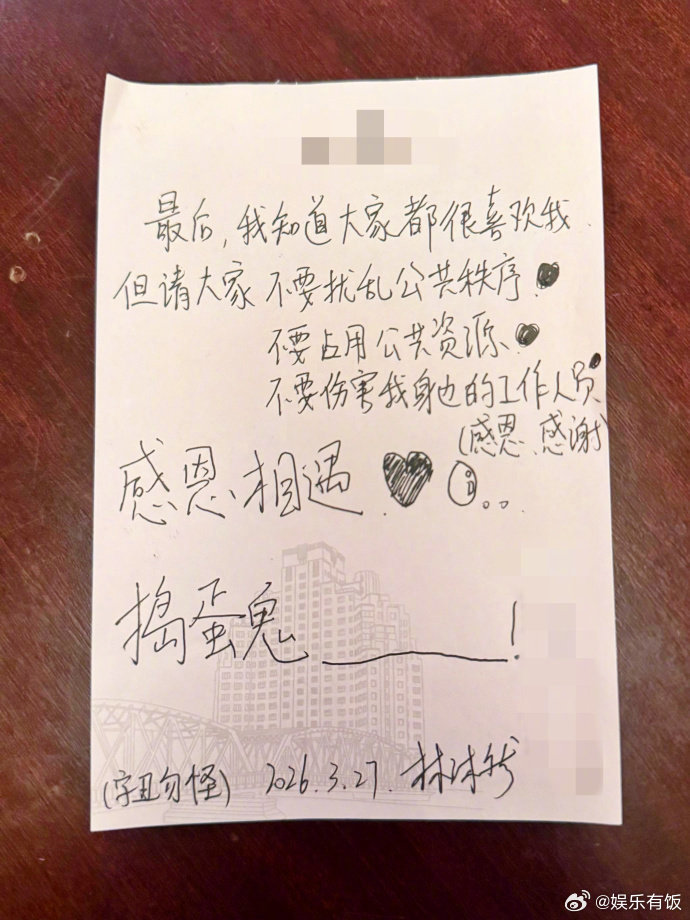 最后,我知道大家都很喜欢我.
但请大家 不要扰乱公共秩序.
不要占用公共资源.
不要伤害我身边的工作人员.
(感恩、感谢)
感恩、相遇.
捣蛋鬼 ________!
(字丑勿怪) 2026.3.27. 林沐然
@娱乐有饭